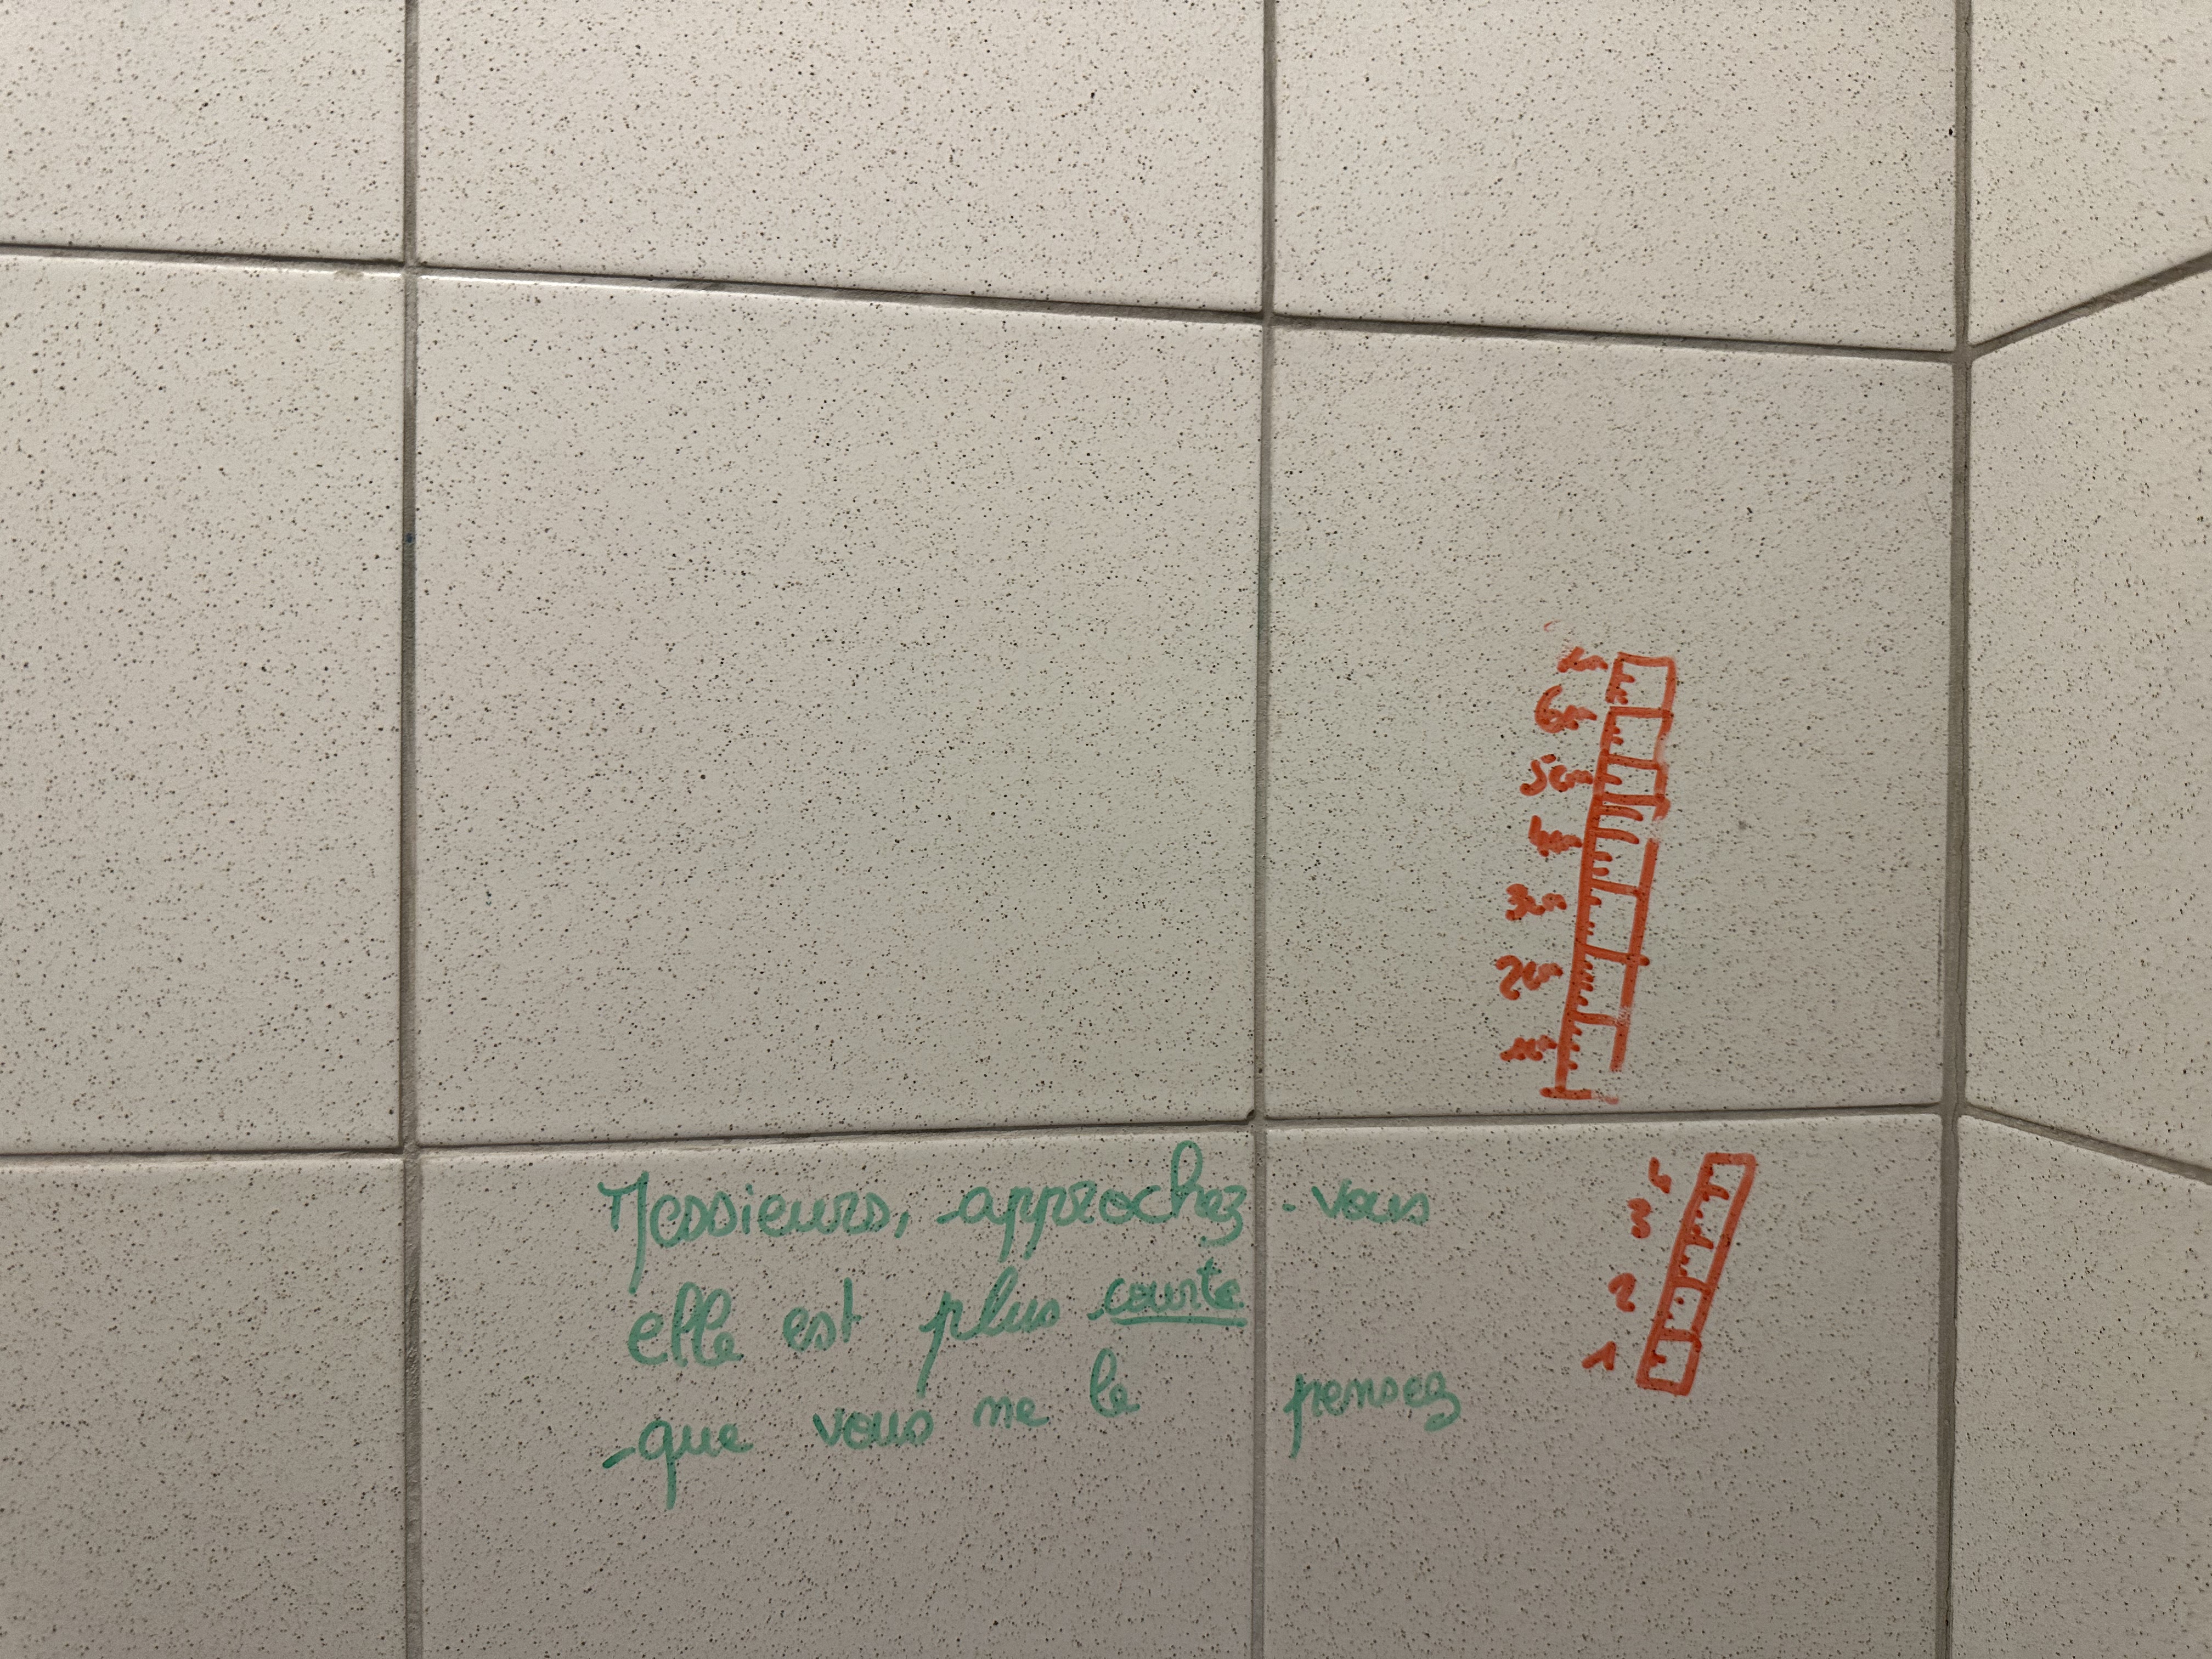 6cm
5cm
4cm
3cm
2cm
1cm
Messieurs, approchez-vous
elle est plus courte
que vous ne le pensez
4
3
2
1